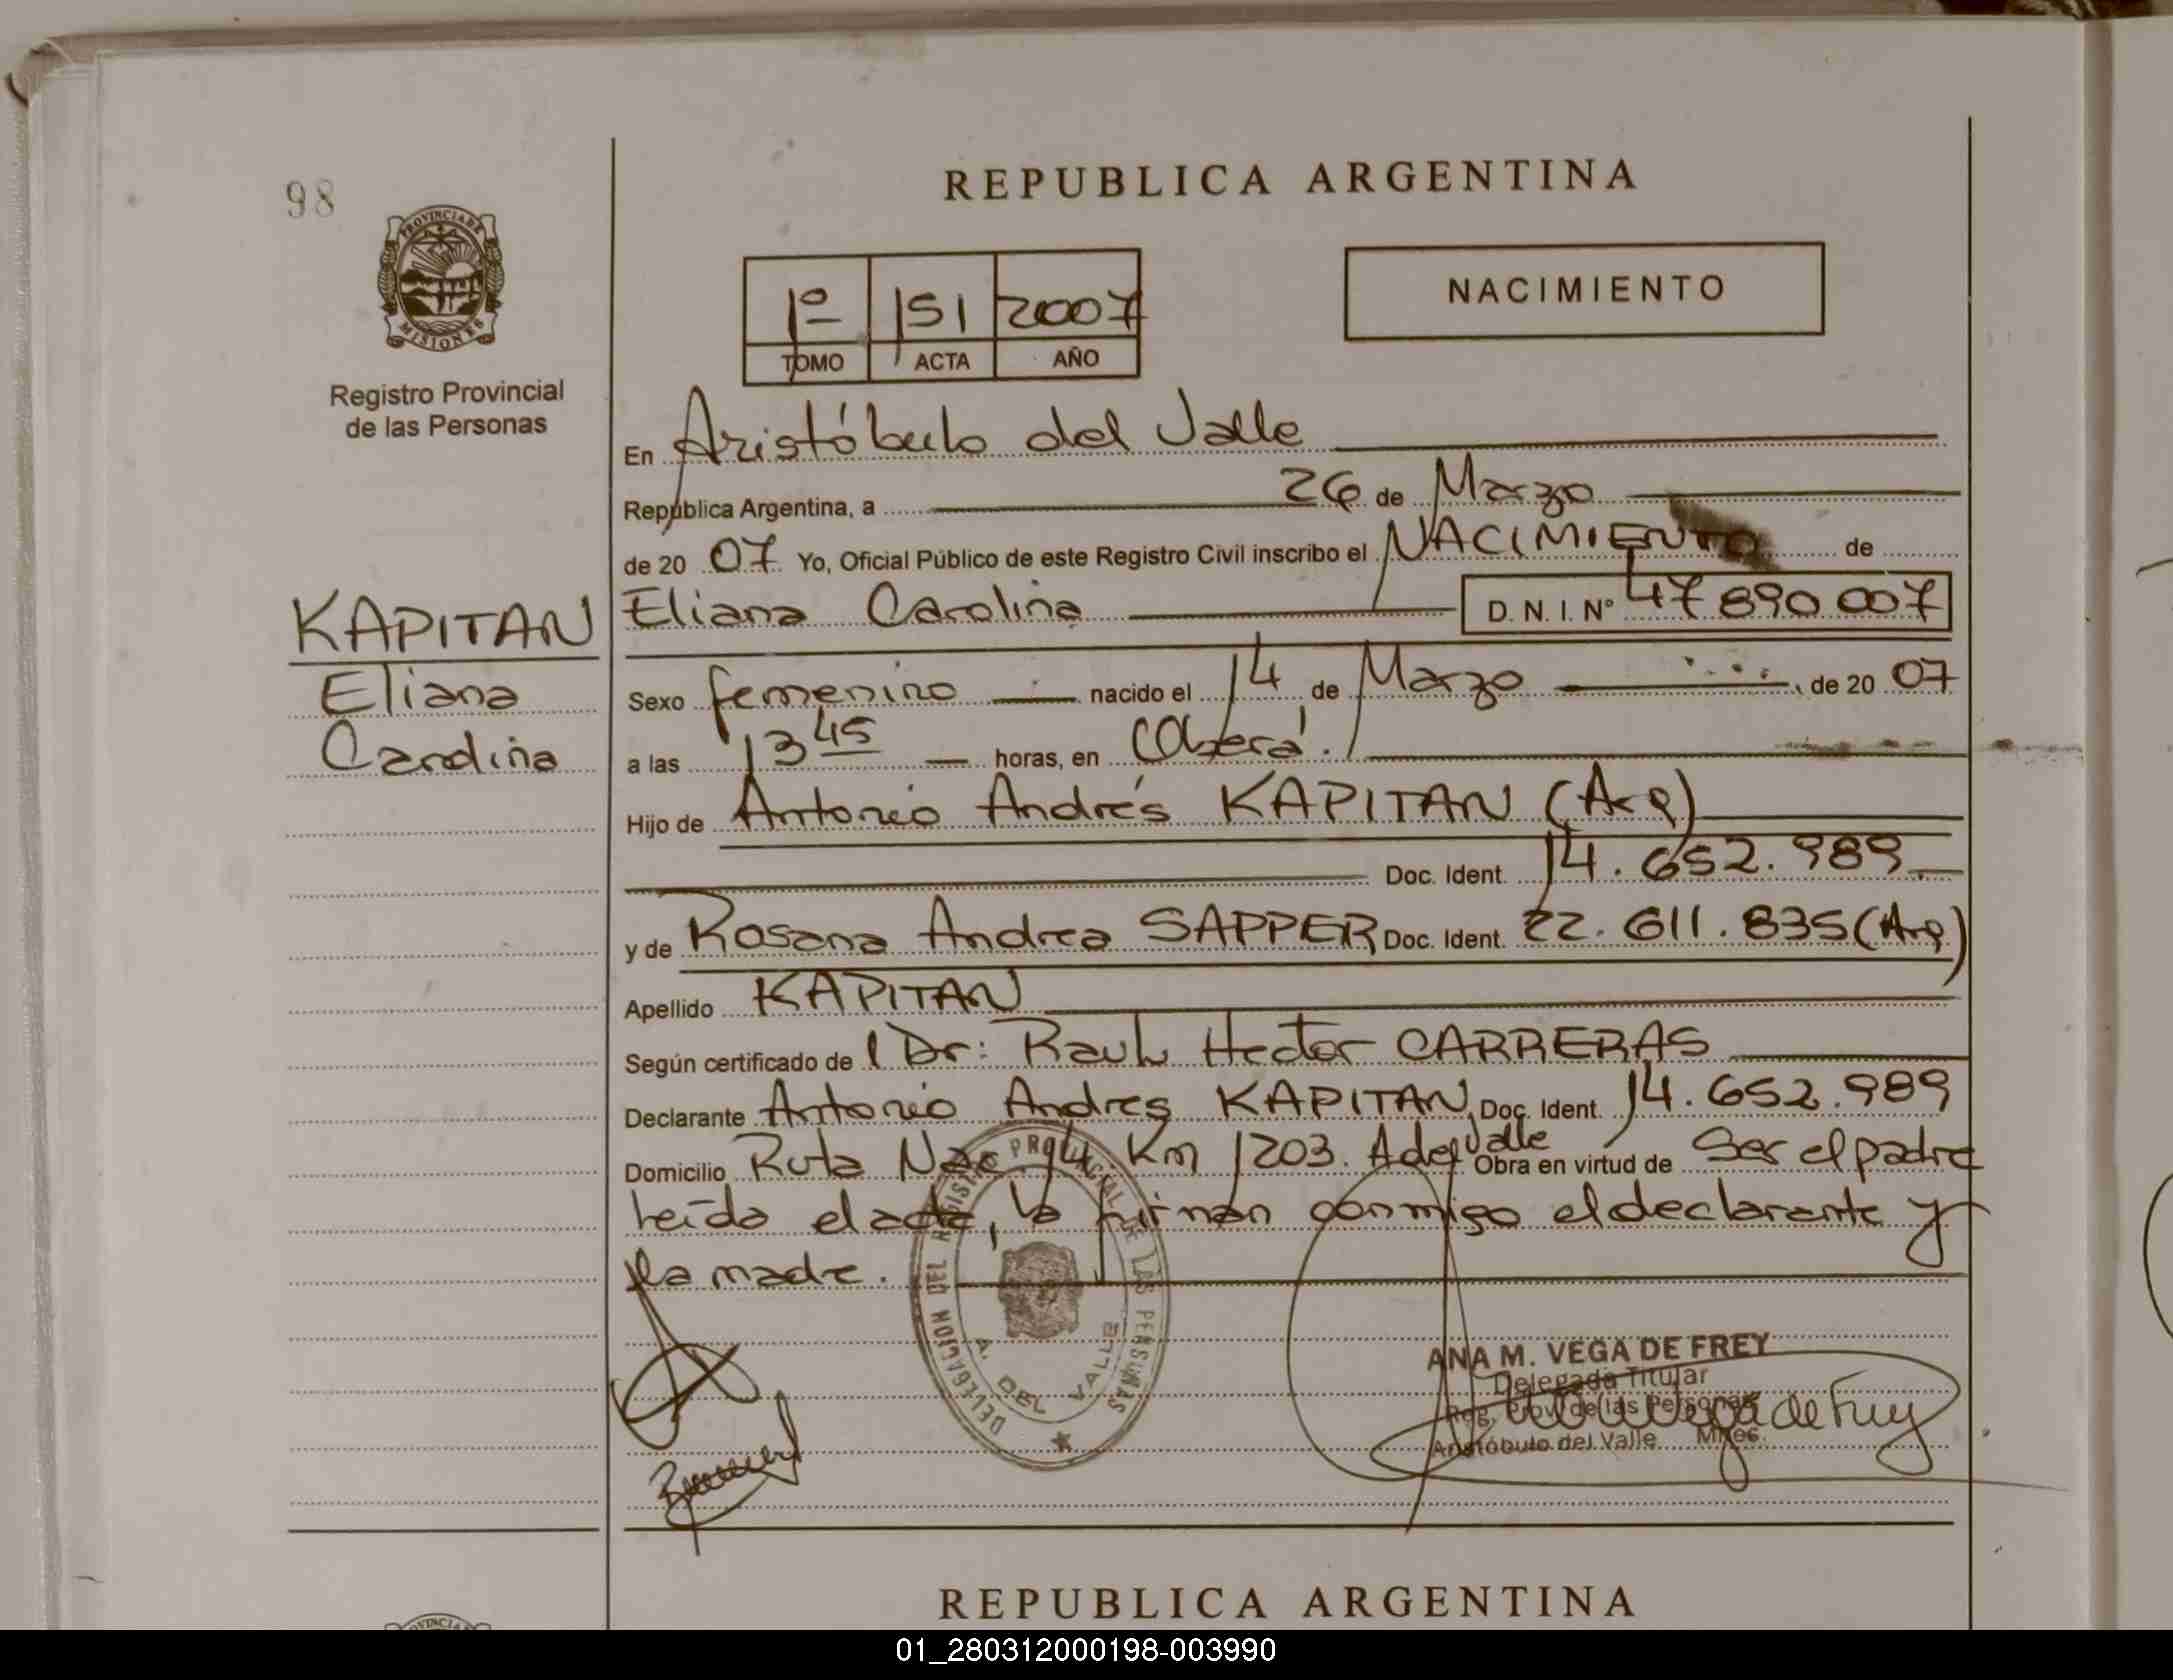 98
PROVINCIA DE
MISIONES
Registro Provincial
de las Personas
KAPITAN
Eliana
Carolina
REPUBLICA ARGENTINA
1º 151 2007
TOMO ACTA AÑO
NACIMIENTO
En Aristóbulo del Valle
República Argentina, a 26 de Marzo
de 20 07 Yo, Oficial Público de este Registro Civil inscribo el NACIMIENTO de
Eliana Carolina D. N. I. Nº 47890007
Sexo femenino nacido el 14 de Marzo de 20 07
a las 13 45 horas, en Oberá.
Hijo de Antonio Andrés KAPITAN (Arg)
Doc. Ident. 14.652.989
y de Rosana Andrea SAPPER Doc. Ident. 22.611.835 (Arg)
Apellido KAPITAN
Según certificado de Dr: Raul Hector CARRERAS
Declarante Antonio Andres KAPITAN Doc. Ident. 14.652.989
Domicilio Ruta Nac. 14 Km 1203. A del Valle Obra en virtud de Ser el padre
leída el acta, la firman conmigo el declarante y
la madre.
DELEGACION DEL REGISTRO PROVINCIAL DE LAS PERSONAS
A. DEL VALLE
ANA M. VEGA DE FREY
Delegada Titular
Reg. Prov. de las Personas
Aristóbulo del Valle Mnes.
de Frey
REPUBLICA ARGENTINA
01_280312000198-003990